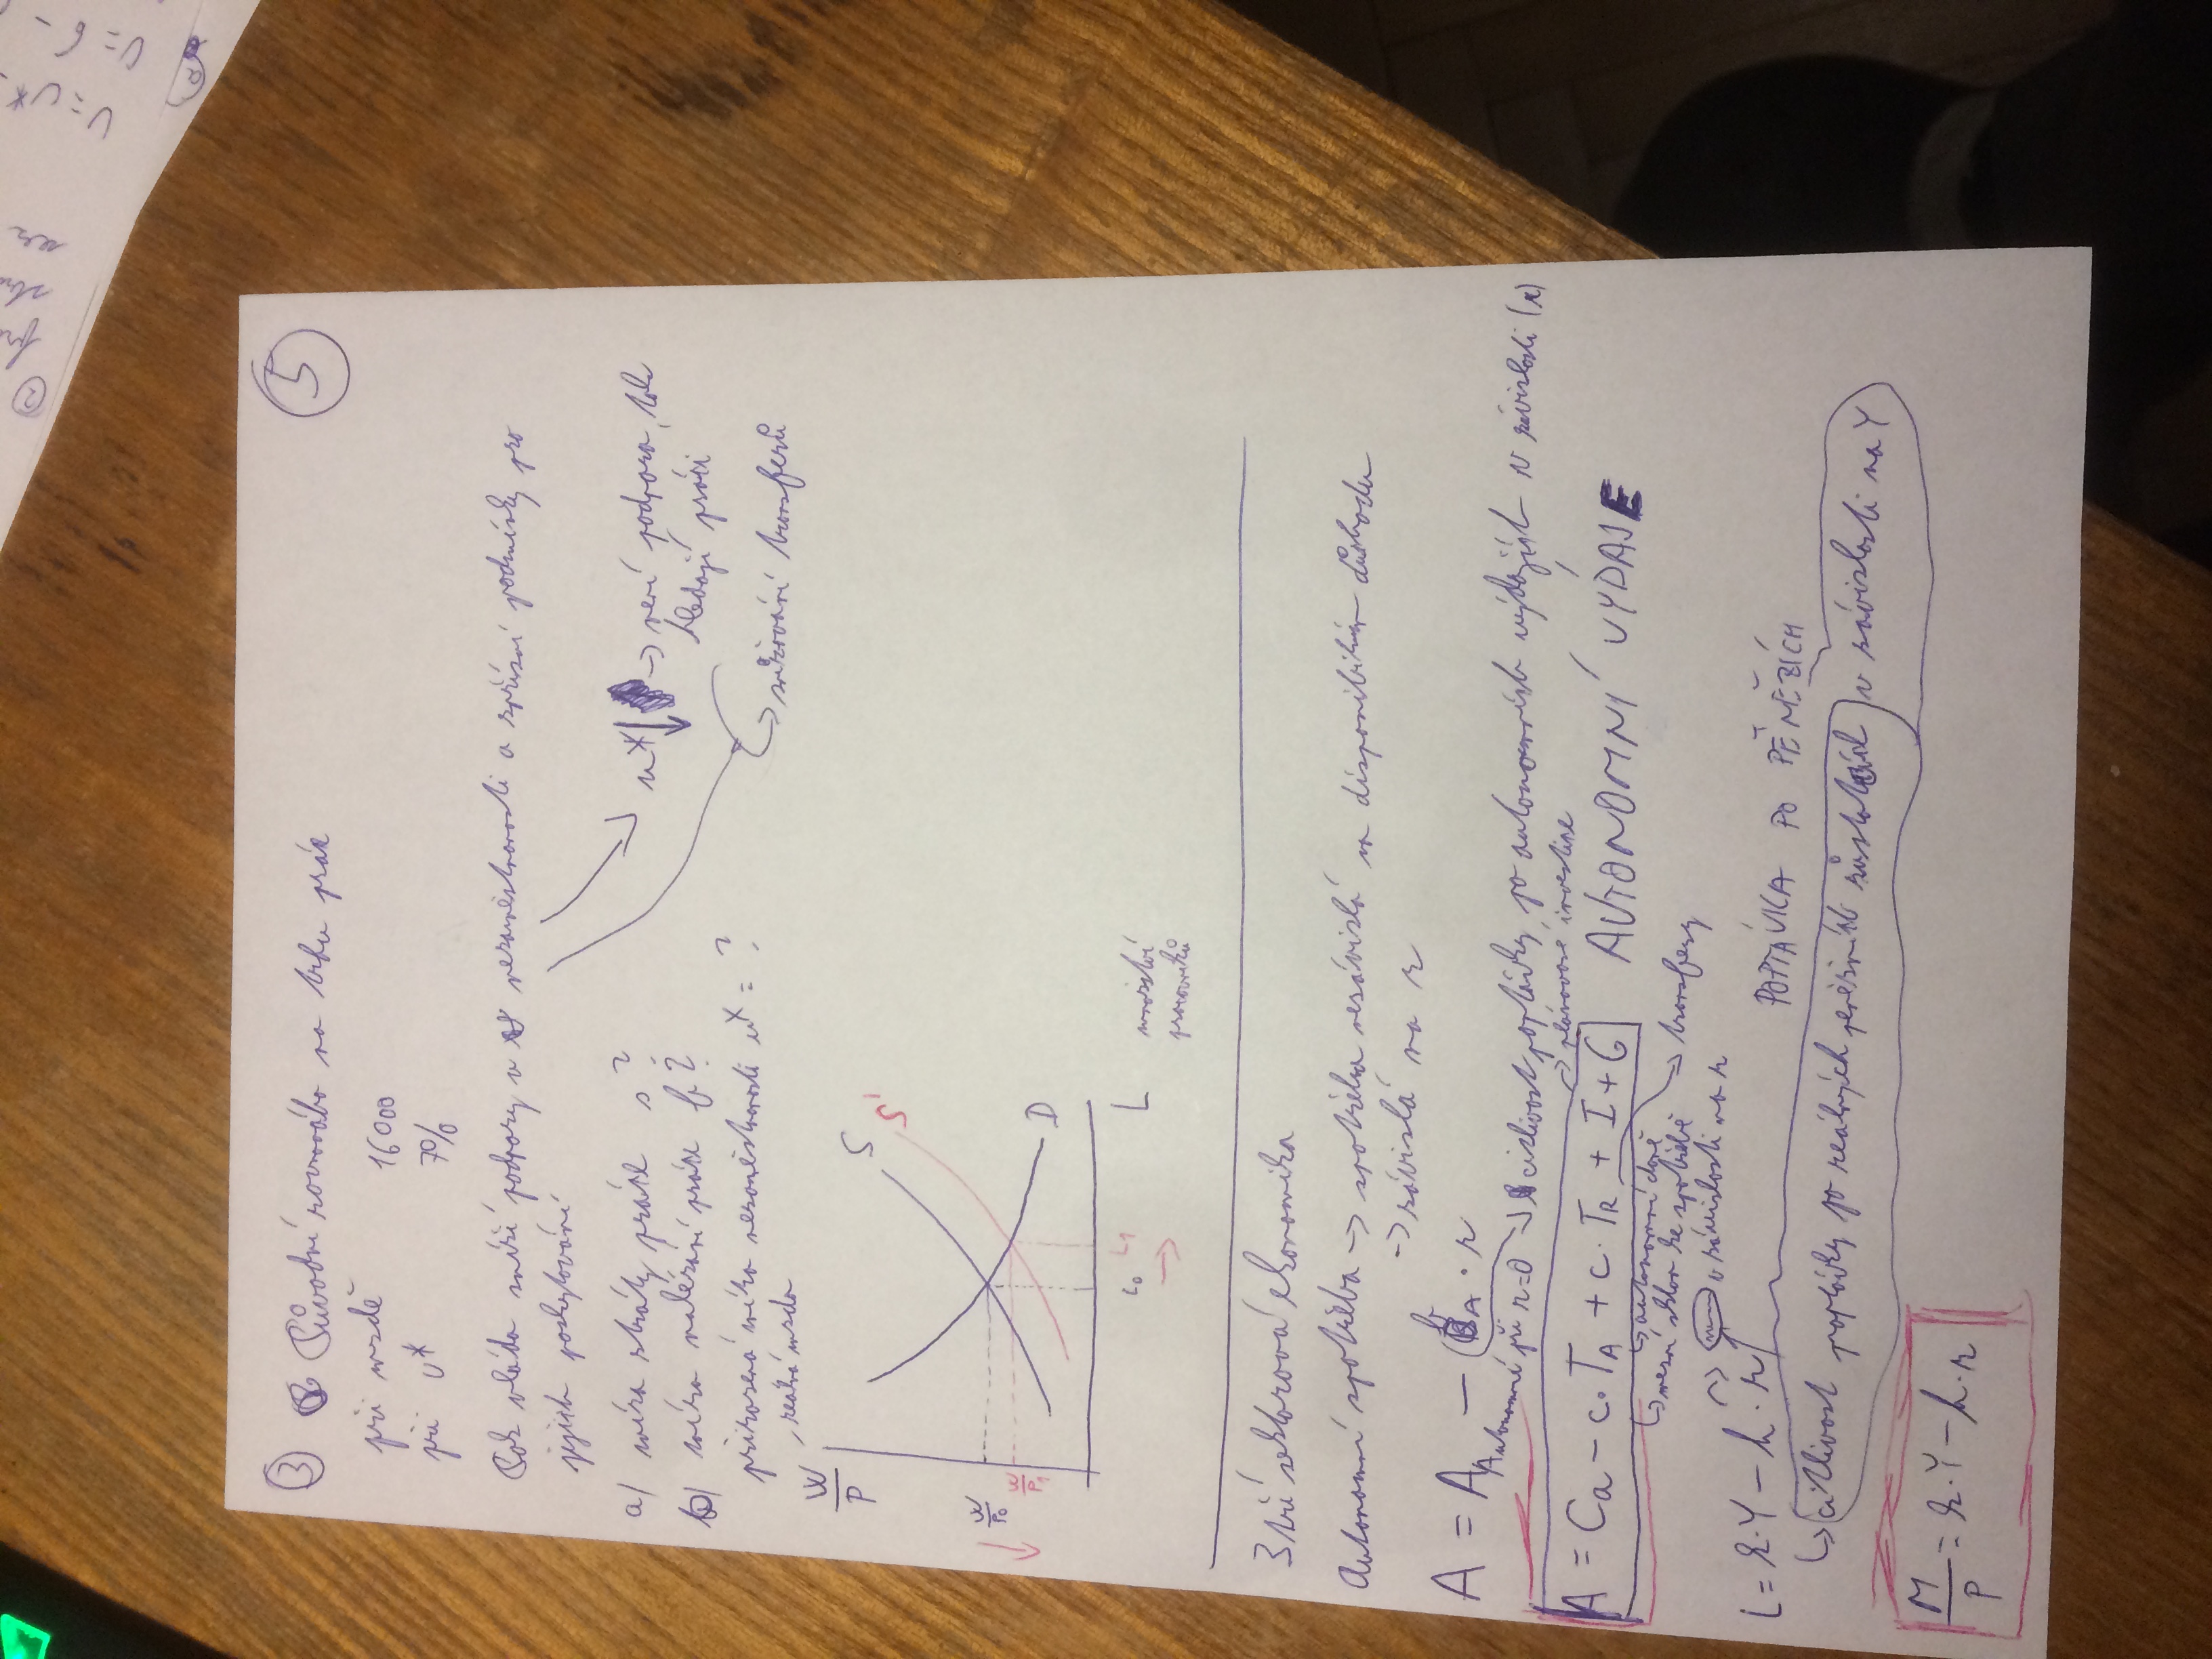 ③ Původní rovnováha na trhu práce
⑤
při mzdě 16000
při U* 7%
Pak vláda sníží podpory v nezaměstnanosti a zpřísní podmínky pro
jejich poskytování
a) míra ztráty práce s?
b) míra nalézání práce f?
přirozená míra nezaměstnanosti u* = ?
u*↓ → není podpora, tak
hledají práci
↳ snižování transferů
reálná mzda
W/P
S
S'
W/P0
W/P1
D
L0 L1
L množství
pracovníků
3 tří sektorová ekonomika
Autonomní spotřeba → spotřeba nezávislá na disponibilním důchodu
→ závislá na r
A = A_A - b_A · r
Autonomní při r=0 ↳ citlivost poptávky po autonomních výdajích v závislosti (r)
→ plánované investice
A = Ca - c·T_A + c·T_R + I + G AUTONOMNÍ VÝDAJE
↳ autonomní daně
↳ mezní sklon ke spotřebě → transfery
→ v závislosti na r
L = k·Y - h·r POPTÁVKA PO PĚNĚZÍCH
↳ citlivost poptávky po reálných peněžních zůstatcích v závislosti na Y
M/P = k·Y - h·r
②
U = U* -
U = 6 -
a